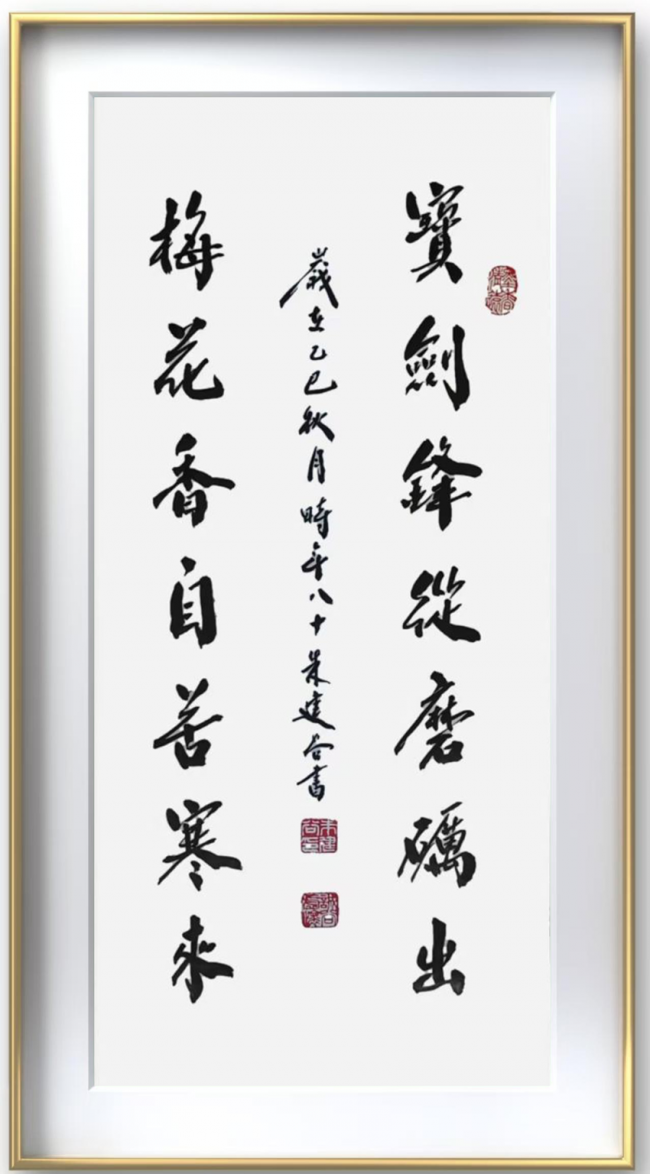 寶劍鋒從磨礪出
梅花香自苦寒來
歲在乙巳秋月時年八十朱建書